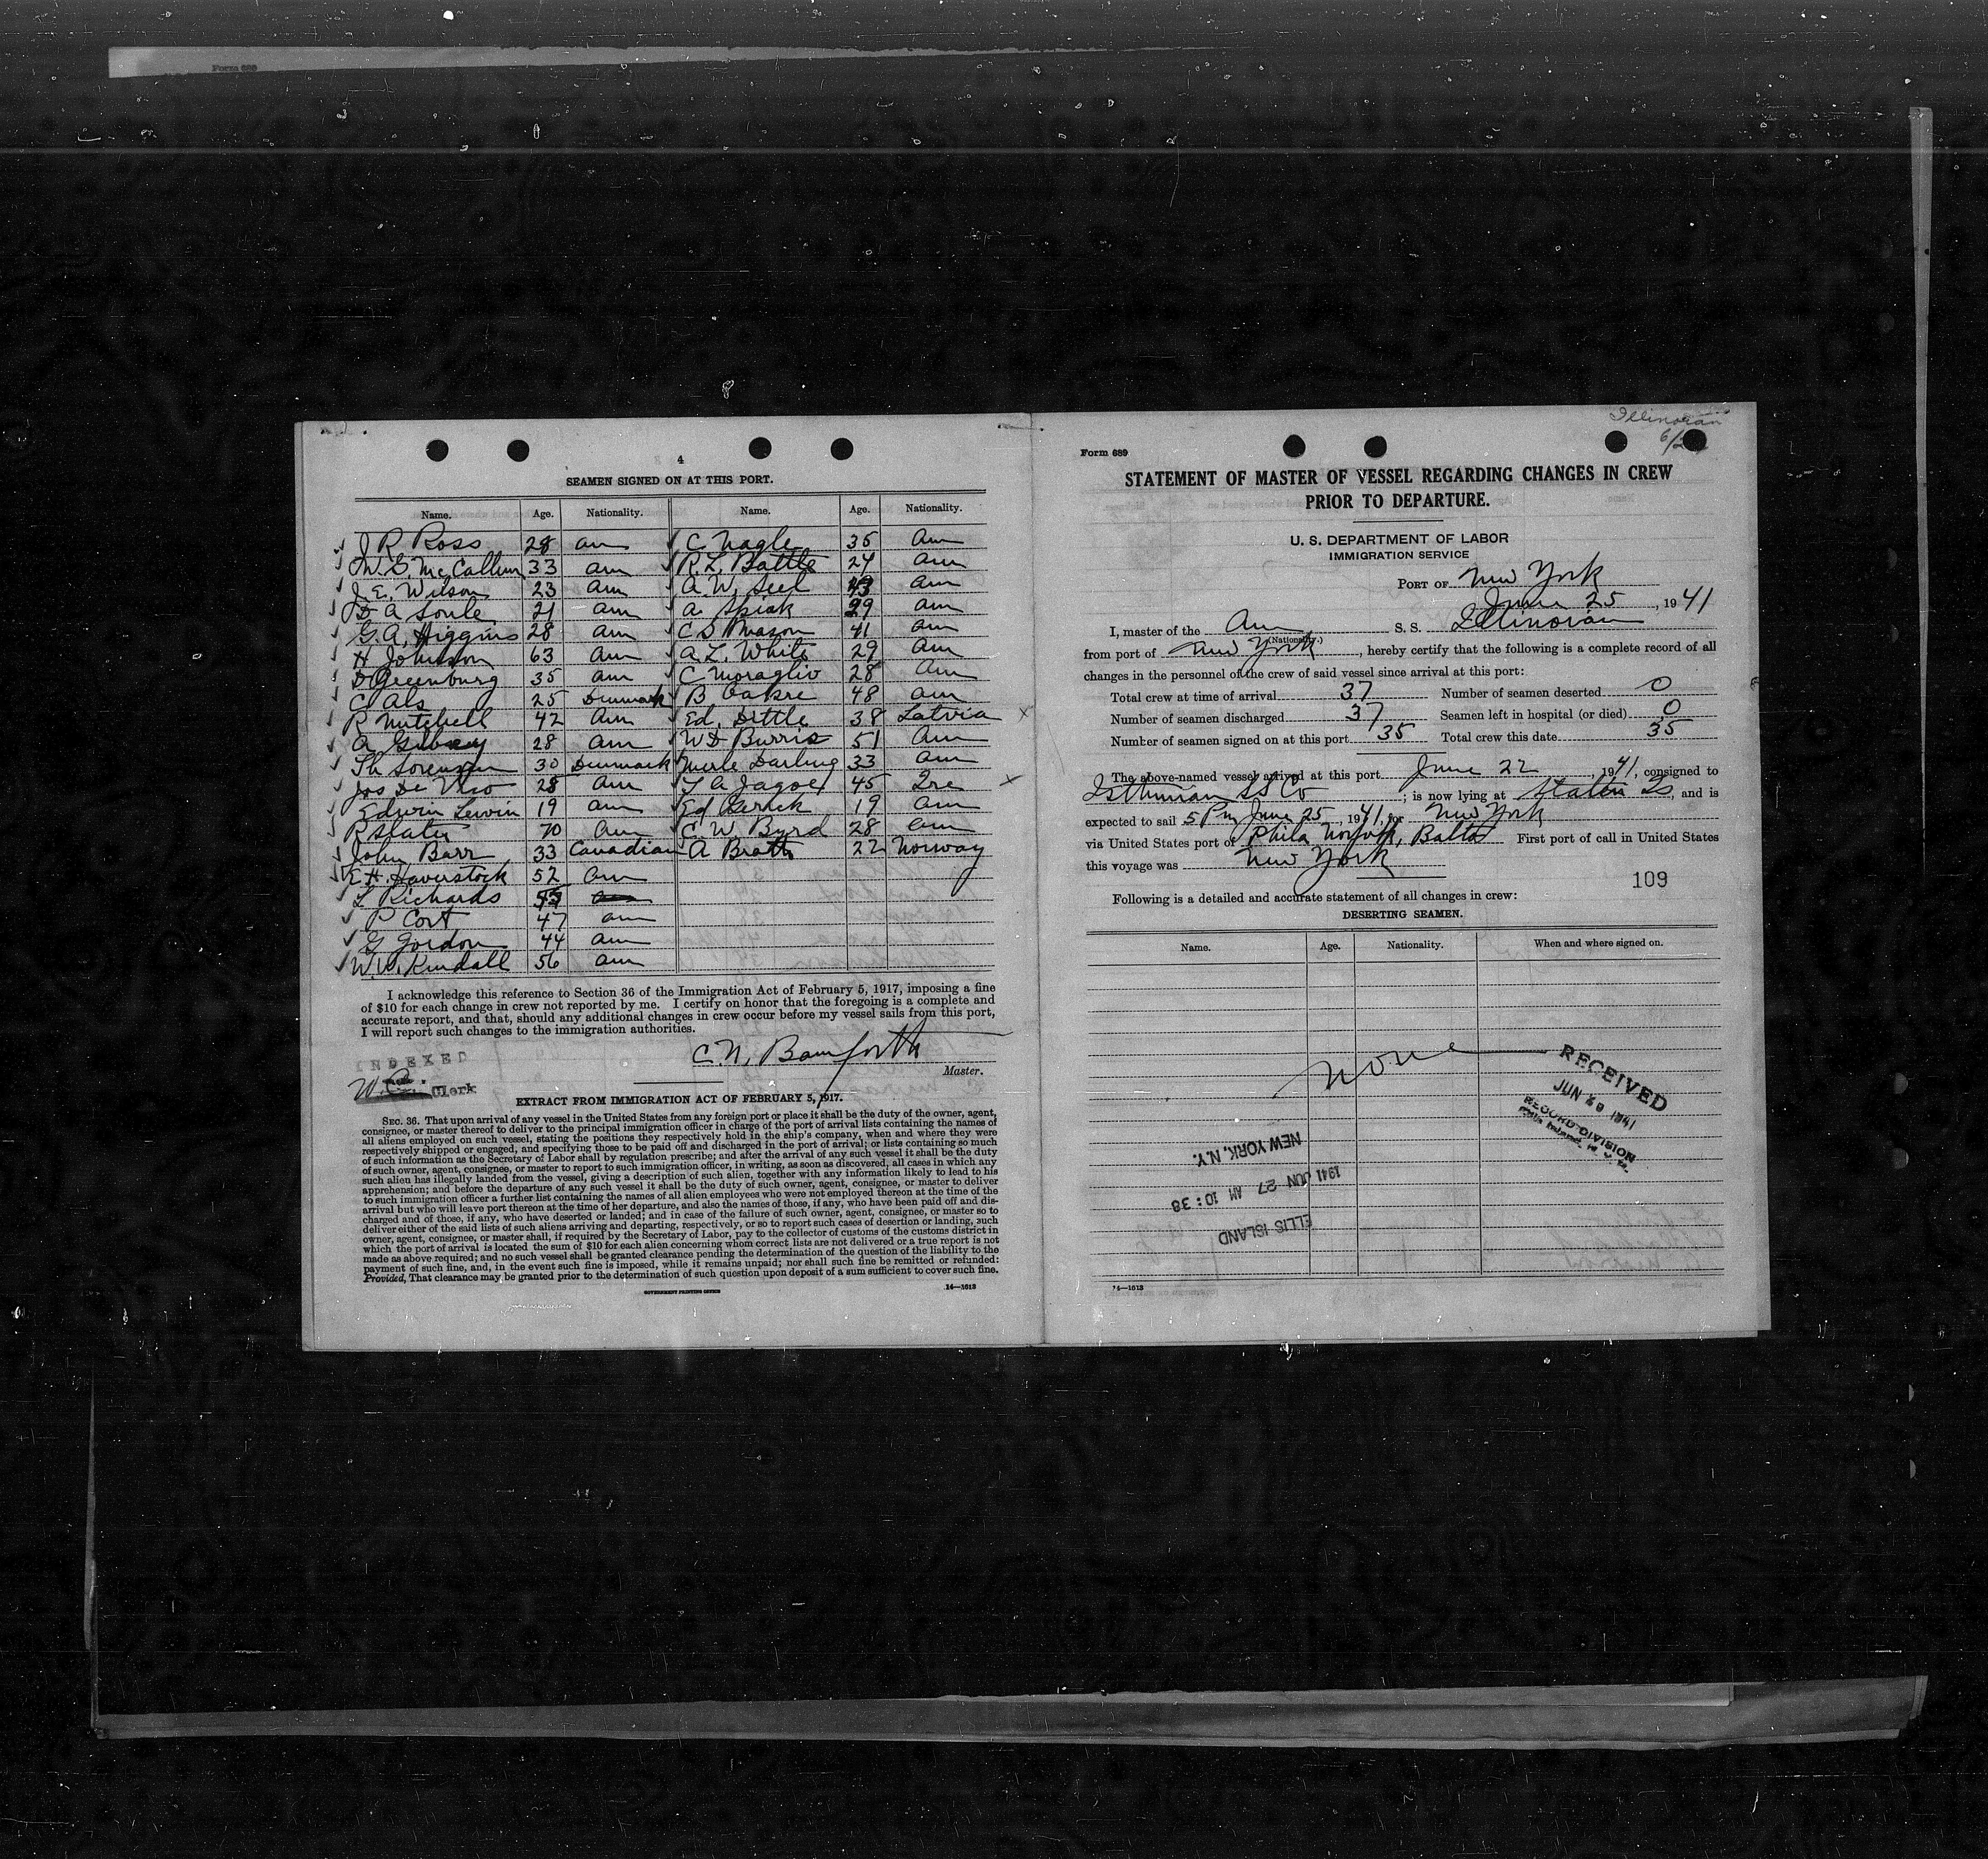 Form 689
4
SEAMEN SIGNED ON AT THIS PORT.
Name. Age. Nationality. Name. Age. Nationality.
J R Ross 28 am C Nagle 35 am
W. G. McCallum 33 am R. L. Battle 24 am
J. E. Wilson 23 am A. W. Seel 43 am
D A Soule 21 am A. Spiak 29 am
G. A. Higgins 28 am C D Mason 41 am
H Johnson 63 am A. L. White 29 am
D Greenburg 35 am C Moraglio 28 am
C Als 25 Denmark B 48 am
R Mitchell 42 am Ed. Dettle 38 Latvia x
A Gibney 28 am W D Burris 51 am
Th Sorensen 30 Denmark Merle Darling 33 am
Jos De Vico 28 am A Jagoe 45 Ire x
Edwin Lewin 19 am Ed 19 am
R Slater 70 am C. W. Byrd 28 am
John Barr 33 Canadian A Bratt 22 Norway
E. H. Haverstock 52 am
L Richards am
P Cort 47 am
G Gordon 44 am
W. W. Kendall 56 am
I acknowledge this reference to Section 36 of the Immigration Act of February 5, 1917, imposing a fine
of $10 for each change in crew not reported by me. I certify on honor that the foregoing is a complete and
accurate report, and that, should any additional changes in crew occur before my vessel sails from this port,
I will report such changes to the immigration authorities.
C. N. Bamforth
Master.
INDEXED
Clerk
EXTRACT FROM IMMIGRATION ACT OF FEBRUARY 5, 1917.
SEC. 36. That upon arrival of any vessel in the United States from any foreign port or place it shall be the duty of the owner, agent,
consignee, or master thereof to deliver to the principal immigration officer in charge of the port of arrival lists containing the names of
all aliens employed on such vessel, stating the positions they respectively hold in the ship's company, when and where they were
respectively shipped or engaged, and specifying those to be paid off and discharged in the port of arrival; or lists containing so much
of such information as the Secretary of Labor shall by regulation prescribe; and after the arrival of any such vessel it shall be the duty
of such owner, agent, consignee, or master to report to such immigration officer, in writing, as soon as discovered, all cases in which any
such alien has illegally landed from the vessel, giving a description of such alien, together with any information likely to lead to his
apprehension; and before the departure of any such vessel it shall be the duty of such owner, agent, consignee, or master to deliver
to such immigration officer a further list containing the names of all alien employees who were not employed thereon at the time of the
arrival but who will leave port thereon at the time of her departure, and also the names of those, if any, who have been paid off and dis-
charged and of those, if any, who have deserted or landed; and in case of the failure of such owner, agent, consignee, or master so to
deliver either of the said lists of such aliens arriving and departing, respectively, or so to report such cases of desertion or landing, such
owner, agent, consignee, or master shall, if required by the Secretary of Labor, pay to the collector of customs of the customs district in
which the port of arrival is located the sum of $10 for each alien concerning whom correct lists are not delivered or a true report is not
made as above required; and no such vessel shall be granted clearance pending the determination of the question of the liability to the
payment of such fine, and, in the event such fine is imposed, while it remains unpaid; nor shall such fine be remitted or refunded:
Provided, That clearance may be granted prior to the determination of such question upon deposit of a sum sufficient to cover such fine.
GOVERNMENT PRINTING OFFICE 14—1613
Illinoian
Form 689
STATEMENT OF MASTER OF VESSEL REGARDING CHANGES IN CREW
PRIOR TO DEPARTURE.
U. S. DEPARTMENT OF LABOR
IMMIGRATION SERVICE
PORT OF New York
June 25, 1941
I, master of the Am S. S. Illinoian
(Nationality.)
from port of New York, hereby certify that the following is a complete record of all
changes in the personnel of the crew of said vessel since arrival at this port:
Total crew at time of arrival 37 Number of seamen deserted 0
Number of seamen discharged 37 Seamen left in hospital (or died) 0
Number of seamen signed on at this port 35 Total crew this date 35
The above-named vessel arrived at this port June 22, 1941, consigned to
Isthmian SS Co; is now lying at Staten Is, and is
expected to sail 5 Pm June 25, 1941, for New York
via United States port of Phila Norfolk, Balto First port of call in United States
this voyage was New York
109
Following is a detailed and accurate statement of all changes in crew:
DESERTING SEAMEN.
Name. Age. Nationality. When and where signed on.
None
RECEIVED
JUN 1941
RECORD DIVISION
NEW YORK, N.Y.
1941 JUN 27 AM 10:38
ELLIS ISLAND
14—1613